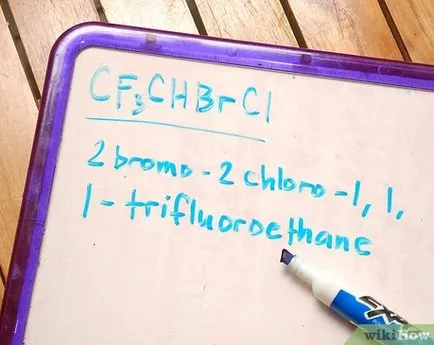 CF₃CHBrCl
2 bromo - 2 chloro - 1, 1,
1 - trifluoroethane
EXPO
wikiHow